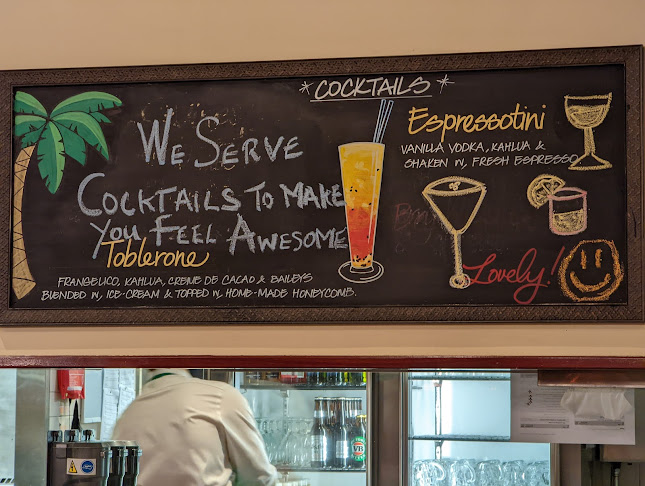 *COCKTAILS*
WE SERVE
COCKTAILS TO MAKE
YOU FEEL AWESOME
Toblerone
FRANGELICO, KAHLUA, CREME DE CACAO & BAILEYS
BLENDED W, ICE-CREAM & TOPPED W, HOME-MADE HONEYCOMB.
Espressotini
VANILLA VODKA, KAHLUA &
SHAKEN W, FRESH ESPRESSO
Lovely!
VB